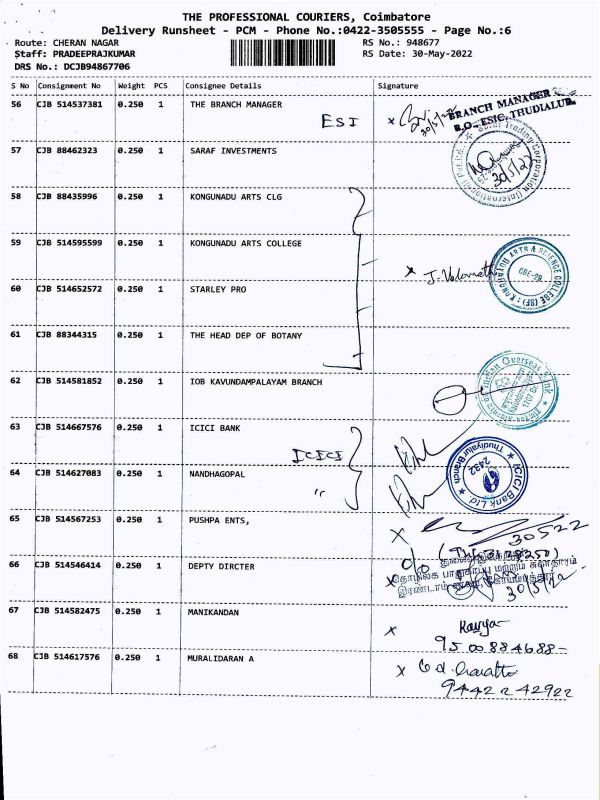 THE PROFESSIONAL COURIERS, Coimbatore
Delivery Runsheet - PCM - Phone No.:0422-3505555 - Page No.:6
Route: CHERAN NAGAR RS No.: 948677
Staff: PRADEEPRAJKUMAR RS Date: 30-May-2022
DRS No.: DCJB94867706
S No Consignment No Weight PCS Consignee Details Signature
56 CJB 514537381 0.250 1 THE BRANCH MANAGER
ESI
BRANCH MANAGER
B.O., ESIC, THUDIALUR
57 CJB 88462323 0.250 1 SARAF INVESTMENTS
Saraf Trading Corporation (International)
30/5/22
58 CJB 88435996 0.250 1 KONGUNADU ARTS CLG
59 CJB 514595599 0.250 1 KONGUNADU ARTS COLLEGE
KONGUNADU ARTS & SCIENCE COLLEGE
CBE-29
60 CJB 514652572 0.250 1 STARLEY PRO
61 CJB 88344315 0.250 1 THE HEAD DEP OF BOTANY
62 CJB 514581852 0.250 1 IOB KAVUNDAMPALAYAM BRANCH
Indian Overseas Bank
63 CJB 514667576 0.250 1 ICICI BANK
ICICI
Thudiyalur Branch
2432
ICICI Bank Ltd.
64 CJB 514627083 0.250 1 NANDHAGOPAL
"
65 CJB 514567253 0.250 1 PUSHPA ENTS,
30522
66 CJB 514546414 0.250 1 DEPTY DIRCTER
30/5/22
67 CJB 514582475 0.250 1 MANIKANDAN
Kavya
9500884688
68 CJB 514617576 0.250 1 MURALIDARAN A
9442242922